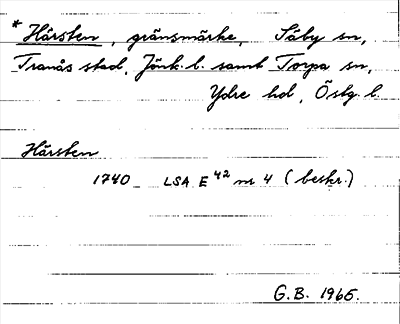 * Hårsten, gränsmärke, Säby sn,
Tranås stad, Jönk. l. samt Torpa sn,
Ydre hd, Östg. l.
Hårsten
1740 LSA E 42 nr 4 (beskr.)
G.B. 1965.